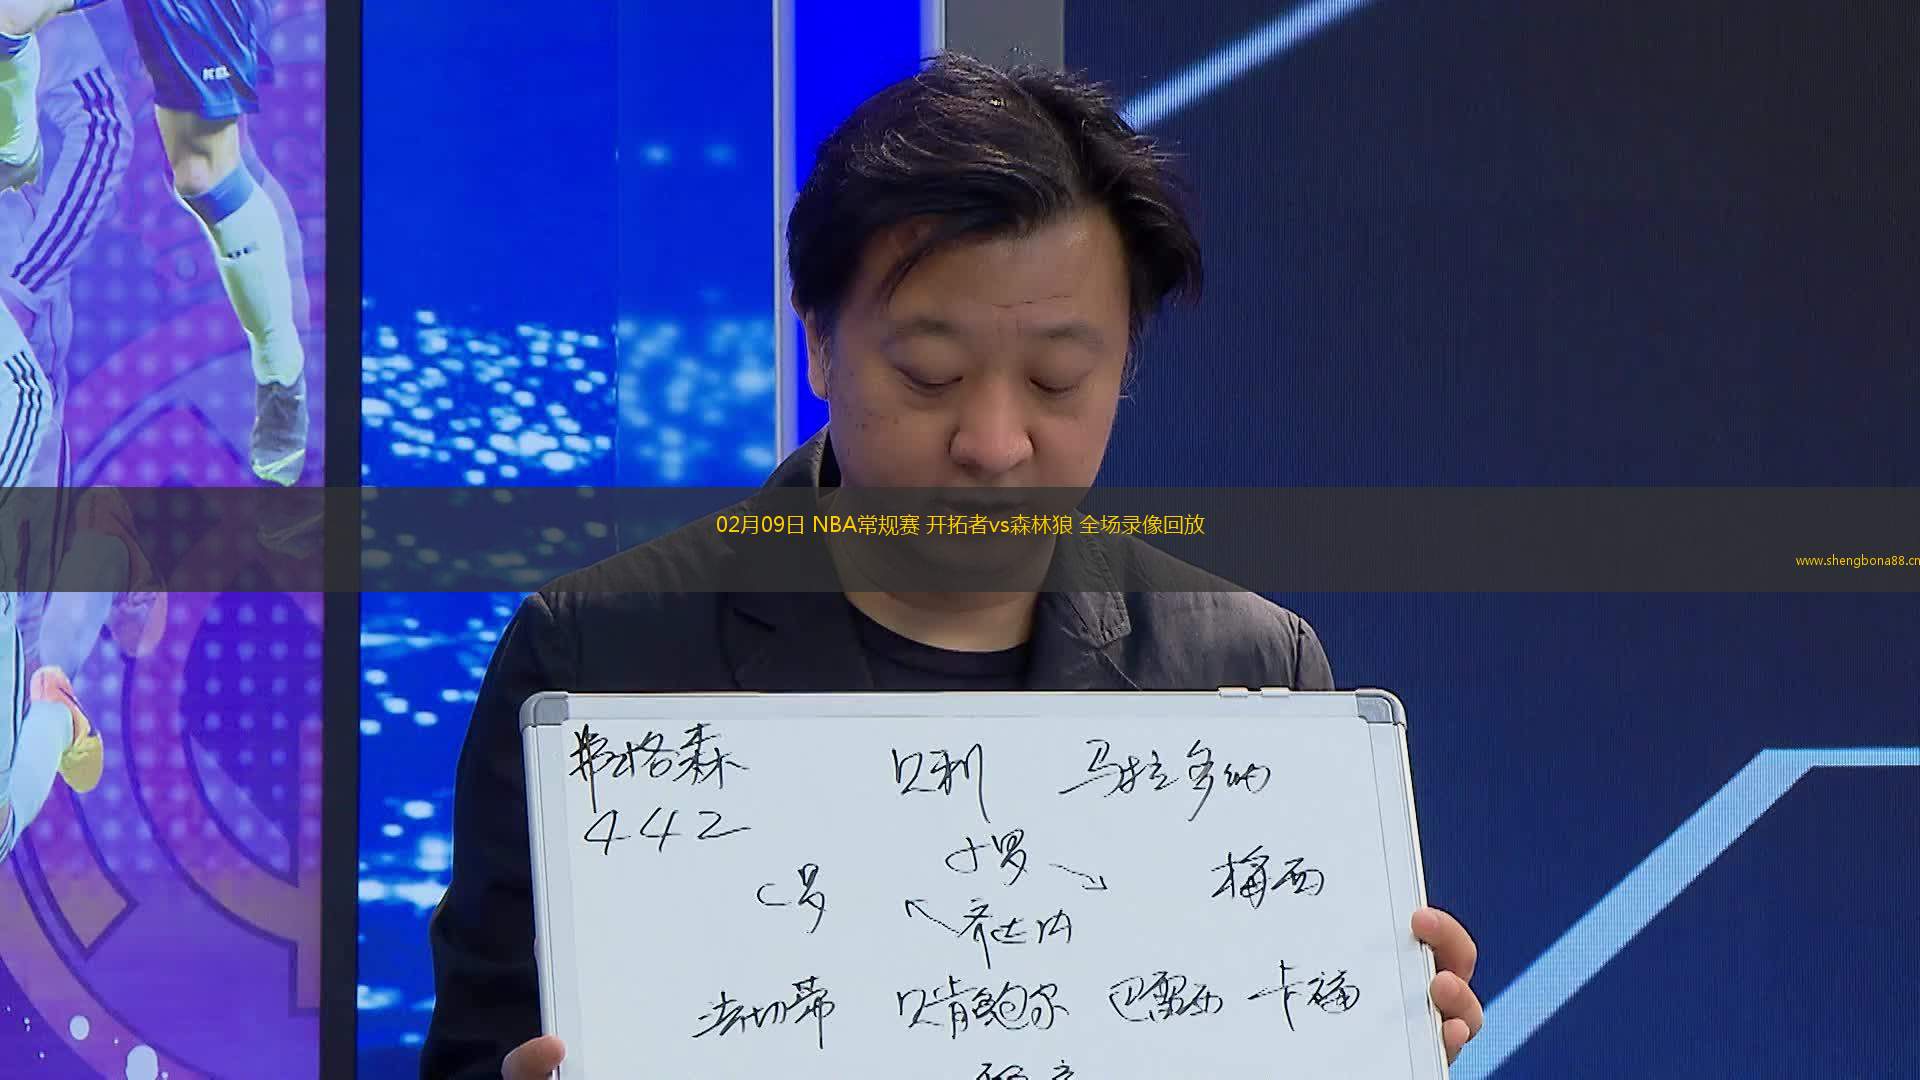 02月09日 NBA常规赛 开拓者vs森林狼 全场录像回放
www.shengbona88.cn
弗格森 贝利 马拉多纳
442
小罗
C罗 梅西
齐达内
法切蒂 贝肯鲍尔 巴雷西 卡福